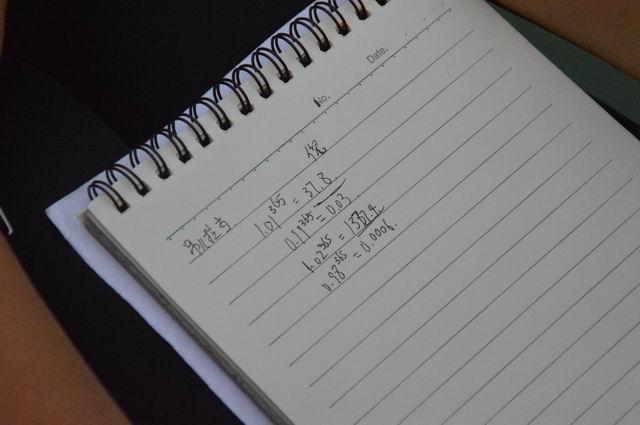 No.
Date.
1.01^365 = 37.8
0.99^365 = 0.03
1.02^365 = 1377.4
0.98^365 = 0.0006